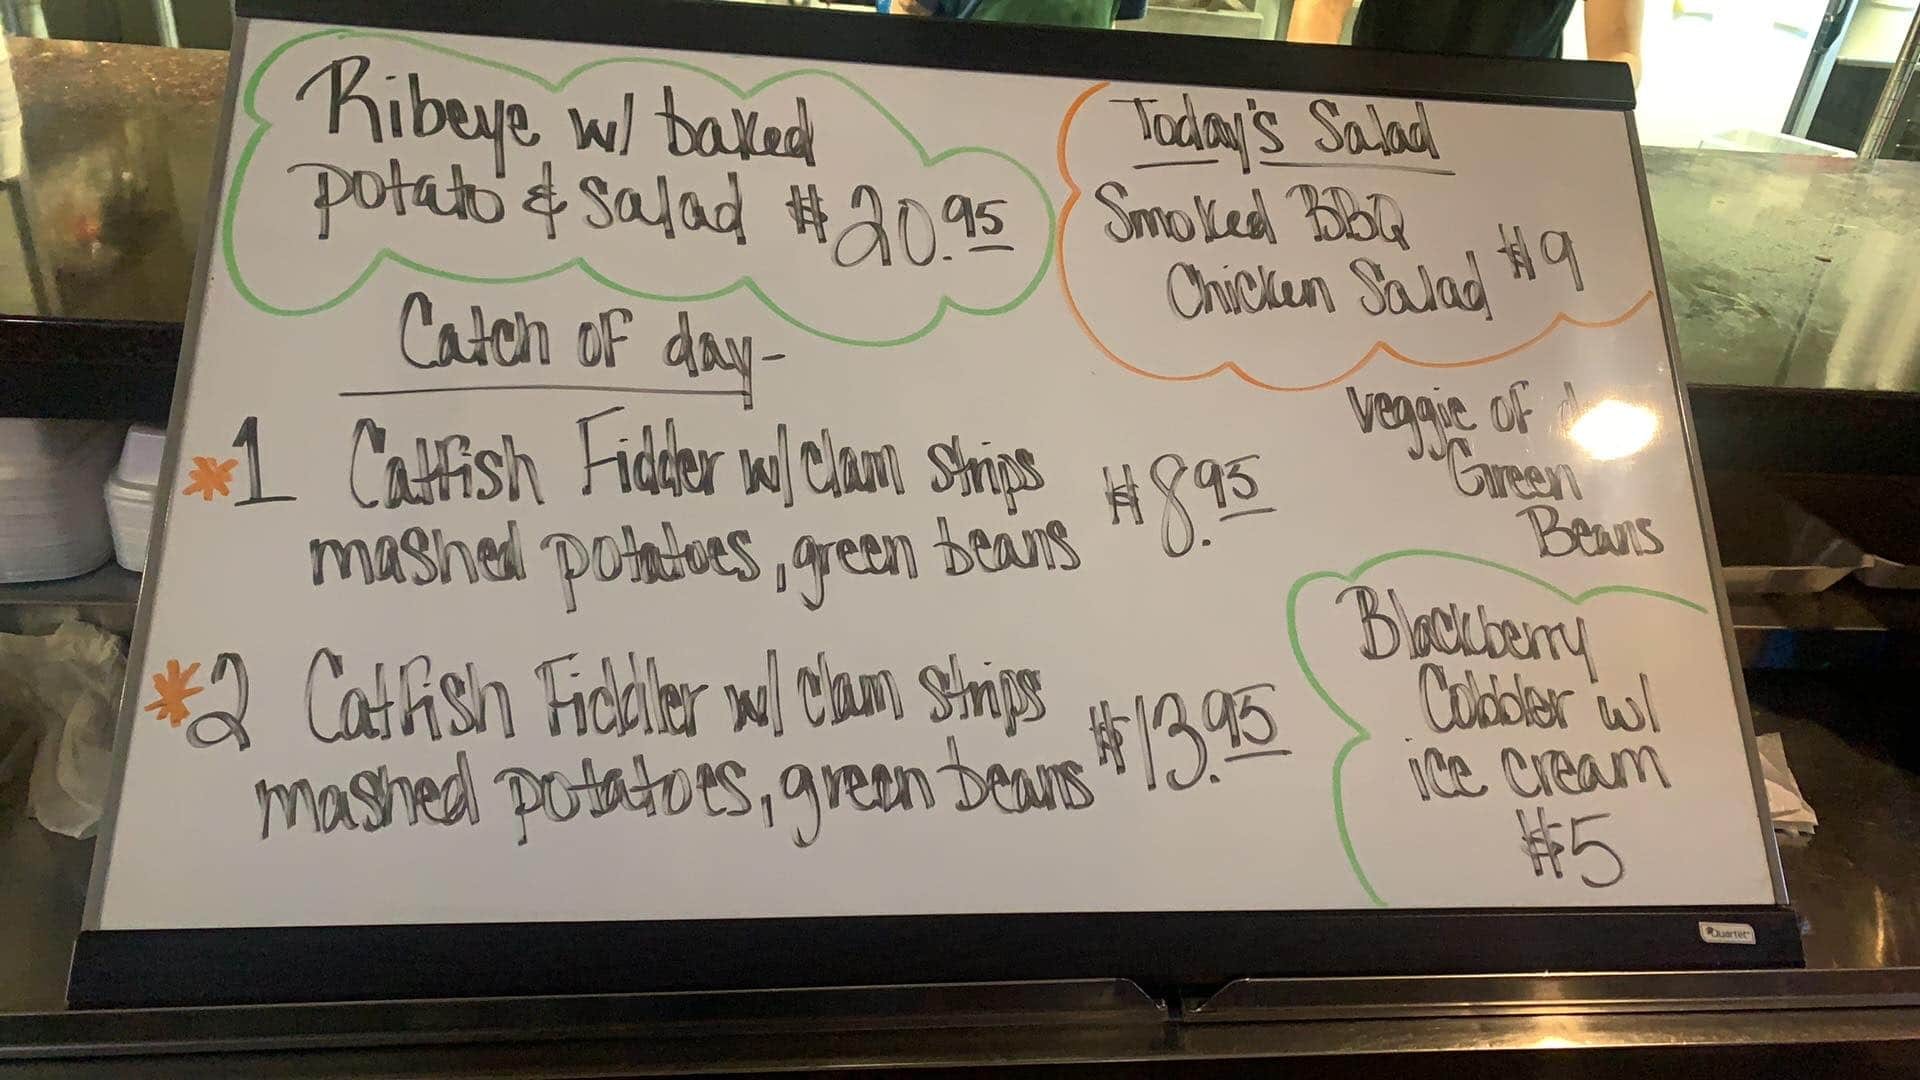 Ribeye w/ baked
potato & salad $20.95
Catch of day-
*1 Catfish Fidder w/ clam strips
mashed potatoes, green beans $8.95
*2 Catfish Fiddler w/ clam strips
mashed potatoes, green beans $13.95
Today's Salad
Smoked BBQ
Chicken Salad $9
Veggie of
Green
Beans
Blackberry
Cobbler w/
ice cream
$5
Quartet